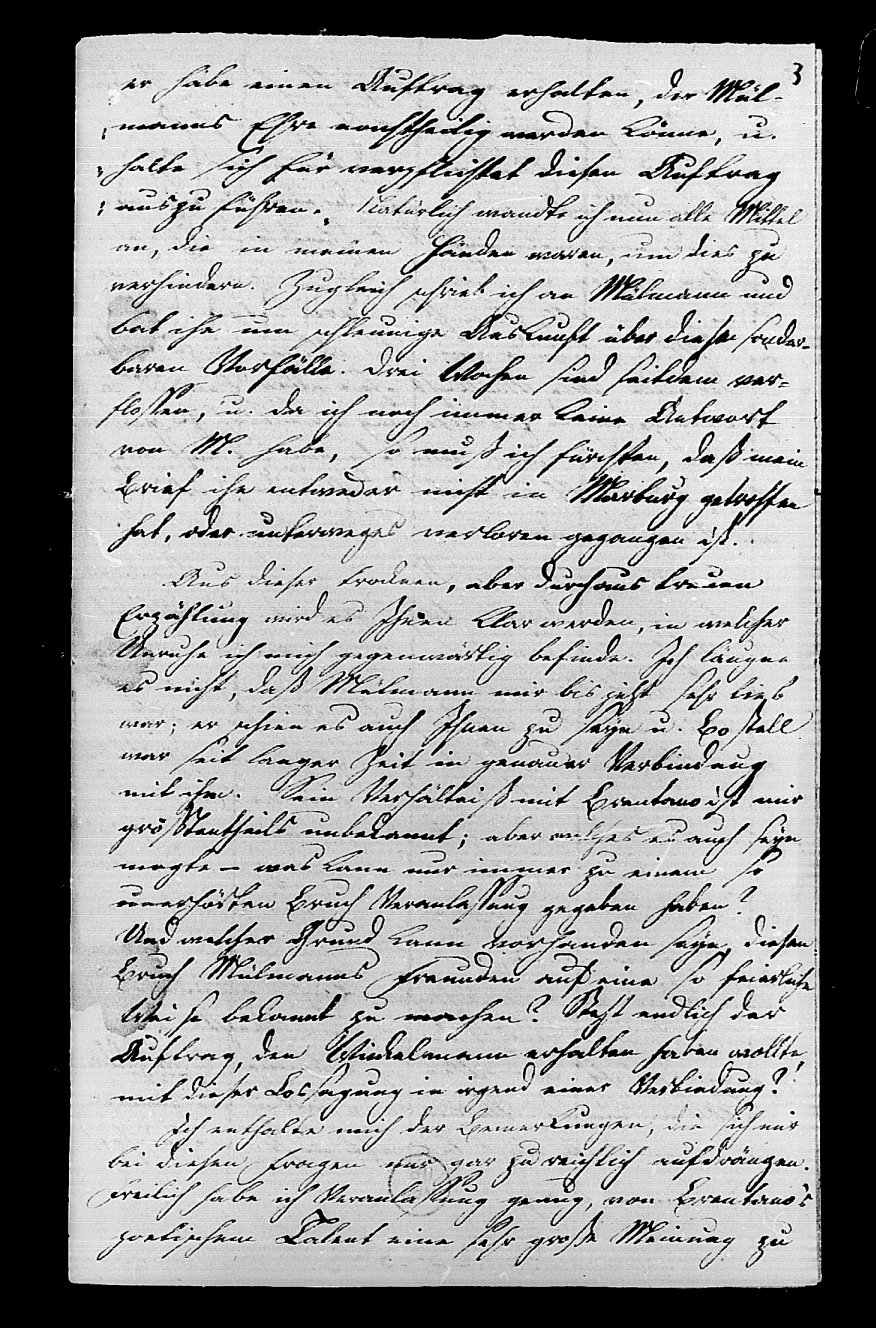 3
er habe einen Auftrag erhalten, der Mül-
„manns Ehre nachtheilig werden könne, u.
„halte sich für verpflichtet diesen Auftrag
„auszuführen.“ Natürlich wandte ich nun alle Mittel
an, die in meinen Händen waren, um dies zu
verhindern. Zugleich schrieb ich an Mülmann und
bat ihn um schleunige Auskunft über diese sonder-
baren Vorfälle. Drei Wochen sind seitdem ver-
flossen, u. da ich noch immer keine Antwort
von M. habe, so muß ich fürchten, daß mein
Brief ihn entweder nicht in Marburg getroffen
hat, oder unterweges verloren gegangen ist.
Aus dieser trocknen, aber durchaus treuen
Erzählung wird es Ihnen klar werden, in welcher
Unruhe ich mich gegenwärtig befinde. Ich läugne
es nicht, daß Mülmann mir bis jetzt sehr lieb
war; er schien es auch Ihnen zu seyn u. Bostell
war seit langer Zeit in genauer Verbindung
mit ihm. Sein Verhältniß mit Brentano ist mir
größtentheils unbekannt; aber welches es auch seyn
mogte – was kann nur immer zu einem so
unerhörten Bruch Veranlassung gegeben haben?
Und welcher Grund kann vorhanden seyn, diesen
Bruch Mülmanns Freunden auf eine so feierliche
Weise bekannt zu machen? Steht endlich der
Auftrag, den Winkelmann erhalten haben wollte,
mit dieser Lossagung in irgend einer Verbindung?
Ich enthalte mich der Bemerkungen, die sich mir
bei diesen Fragen nur gar zu reichlich aufdrängen.
Freilich habe ich Veranlassung genug, von Brentano's
poetischem Talent eine sehr große Meinung zu